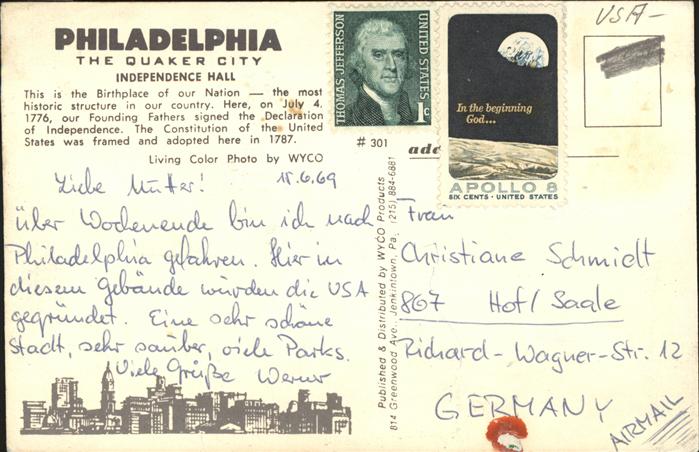 PHILADELPHIA
THE QUAKER CITY
INDEPENDENCE HALL
This is the Birthplace of our Nation — the most
historic structure in our country. Here, on July 4,
1776, our Founding Fathers signed the Declaration
of Independence. The Constitution of the United
States was framed and adopted here in 1787.
Living Color Photo by WYCO
# 301
THOMAS JEFFERSON
UNITED STATES
1c
In the beginning
God...
APOLLO 8
SIX CENTS · UNITED STATES
USA-
Liebe Mutter! 15.6.69
über Wochenende bin ich nach
Philadelphia gefahren. Hier in
diesem Gebäude wurden die USA
gegründet. Eine sehr schöne
Stadt, sehr sauber, viele Parks.
Viele Grüße Werner
Published & Distributed by WYCO Products
814 Greenwood Ave. Jenkintown, Pa. (215) 884-6881
Frau
Christiane Schmidt
867 Hof/Saale
Richard-Wagner-Str. 12
GERMANY
AIRMAIL